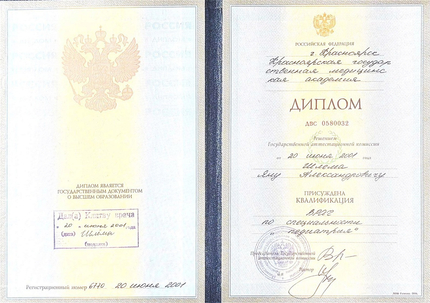 ДИПЛОМ ЯВЛЯЕТСЯ
ГОСУДАРСТВЕННЫМ ДОКУМЕНТОМ
О ВЫСШЕМ ОБРАЗОВАНИИ
Дал(а) Клятву врача
" 20 " июня 2001 года
Шлёма
Регистрационный номер 6770 20 июня 2001
РОССИЙСКАЯ ФЕДЕРАЦИЯ
г. Красноярск
Красноярская государ
ственная медицинс
кая академия
ДИПЛОМ
ДВС 0580032
Решением
Государственной аттестационной комиссии
от 20 июня 2001 года
Шлёма
Яну Александровичу
ПРИСУЖДЕНА
КВАЛИФИКАЦИЯ
ВРАЧ
по специальности
" педиатрия "
Председатель Государственной
аттестационной комиссии
Ректор